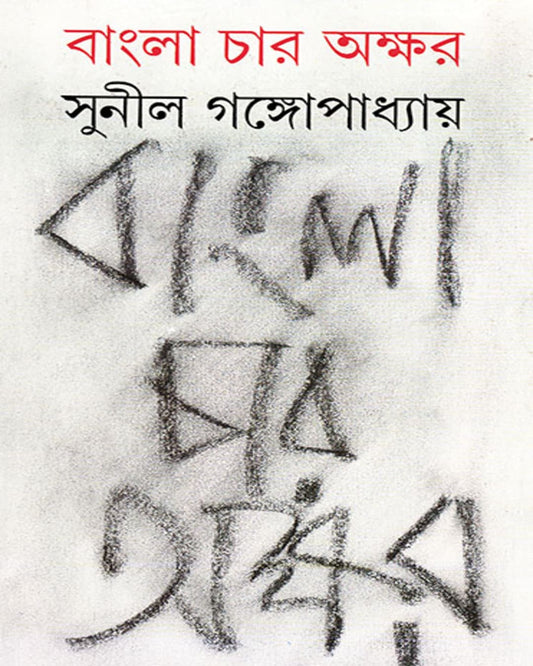 বাংলা চার অক্ষর
সুনীল গঙ্গোপাধ্যায়
বাংলা
চার
অক্ষর